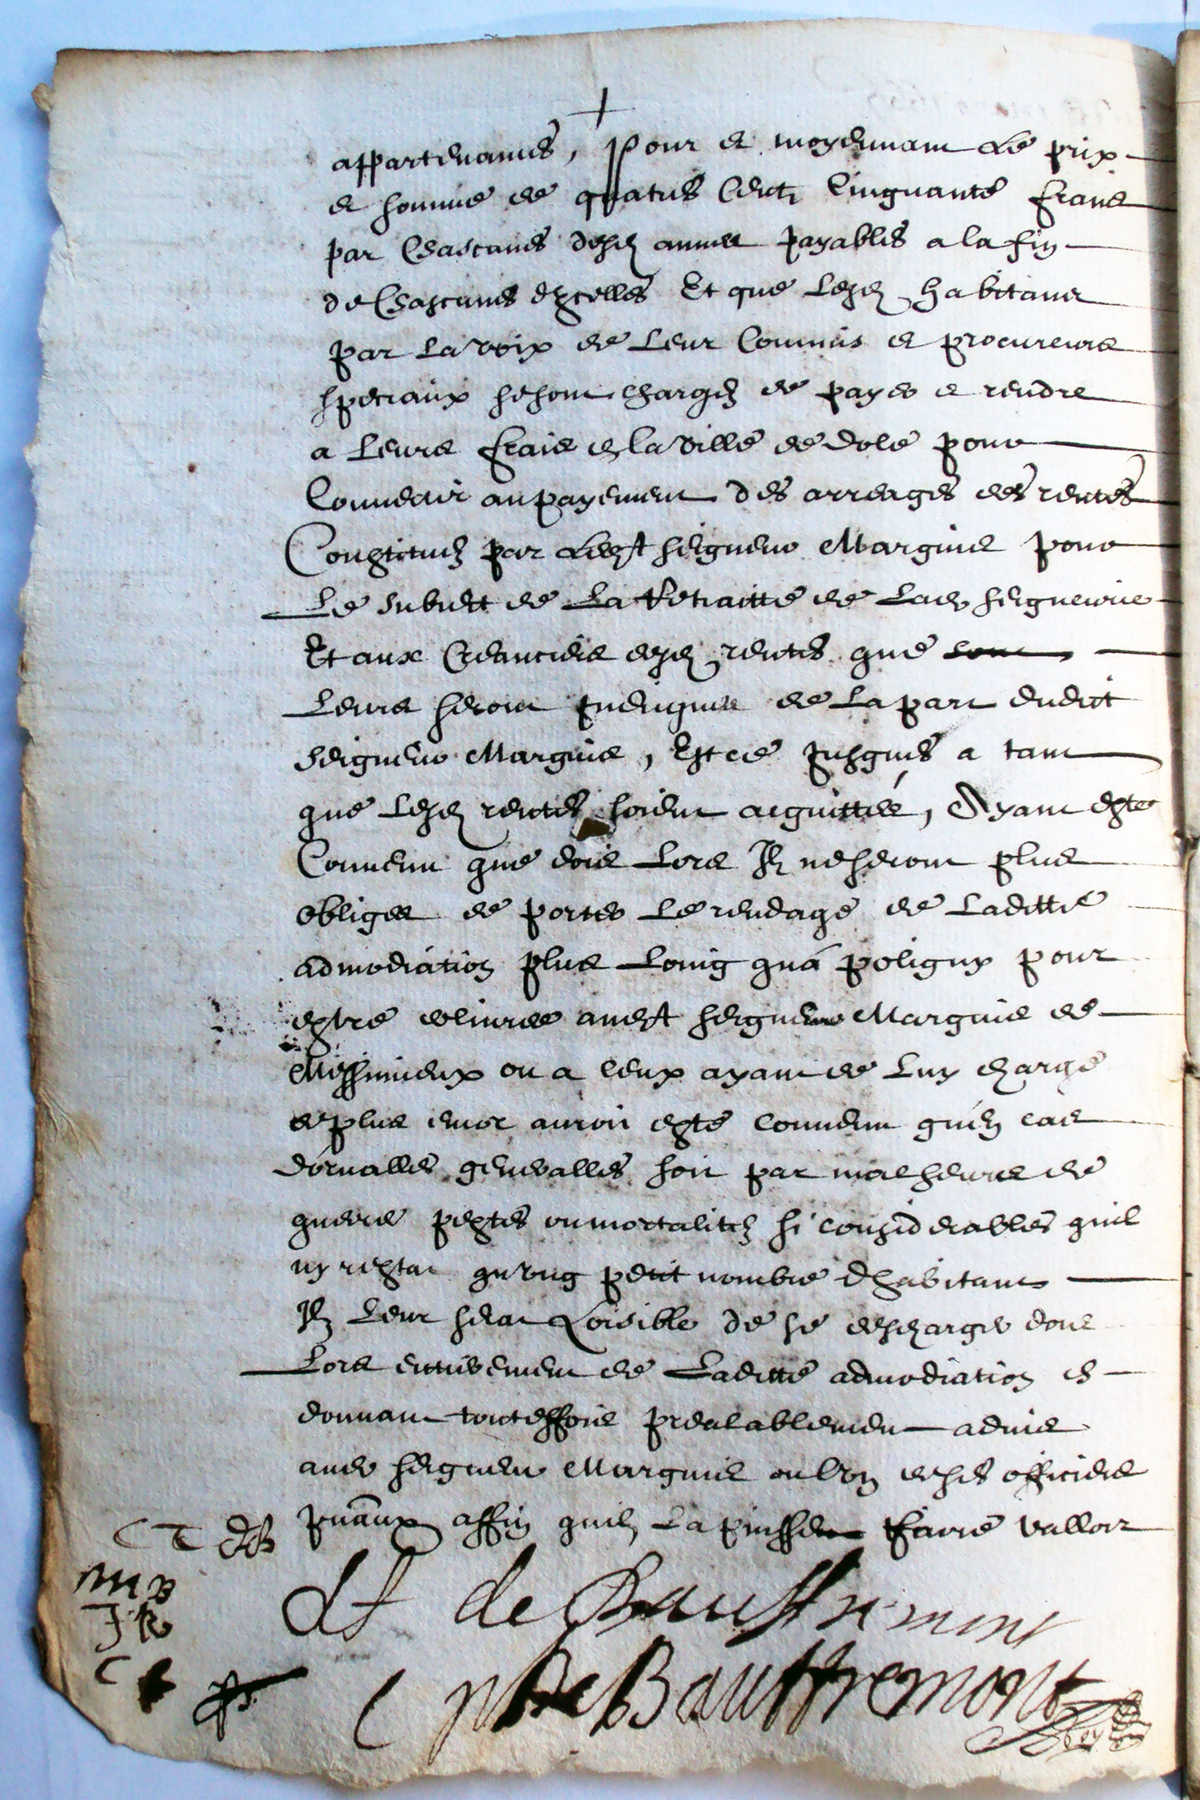 appartenances, Pour et moyennant le prix
et somme de quatres Cent Cinquante frans
par Chascunes desd annees payables a la fin
de Chascunes dycelles Et que lesd habitans
par la voix de leur Commis et procureurs
speciaux se sont chargez de payer et rendre
a leurs frais en la ville de dole pour
Convertir au payement des arreages des rentes
Constituez par ledt seigneur Marquis pour
Le subiect de La Retraitte de Lad seigneurie
Et aux Creanciers desd rentes que
Leurs seront indiquees de la part dudict
Seigneur Marquis, Et ce jusques a tant
que lesd rentes soient acquittees, Ayant este
Convenu que dois Lors Ilz ne seront plus
obligez de porter le rendage de Laditte
admodiation plus Loing qua poligny pour
estre delivree audt seigneur Marquis de
Messimieux ou a ceux ayant de Luy charge
de plus encor auroit este convenu quen cas
d'orvalles generalles soit par malheurs de
guerre pestes ou mortalitez si considerables quil
ny restat qu'ung petit nombre dhabitans
Il Leur serat Loisible de se descharger dois
Lors entierement de Laditte admodiation en
donnant touteffois prealablement advis
aud seigneur Marquis ou lun de ses officiers
principaux affin quilz La puissent faire valloir
C T DB
M B
J R
C
de Bauffremont
C de Bauffremont